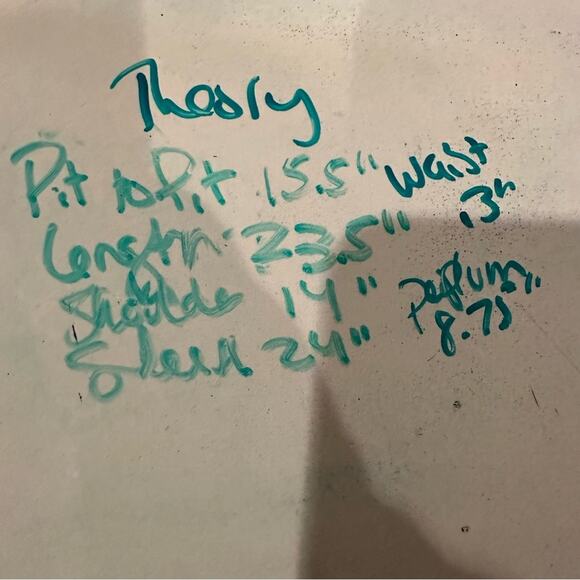 Theory
Pit to Pit 15.5" Waist 13"
Length 23.5"
Shoulder 14" peplum
Sleeve 24" 8.75"